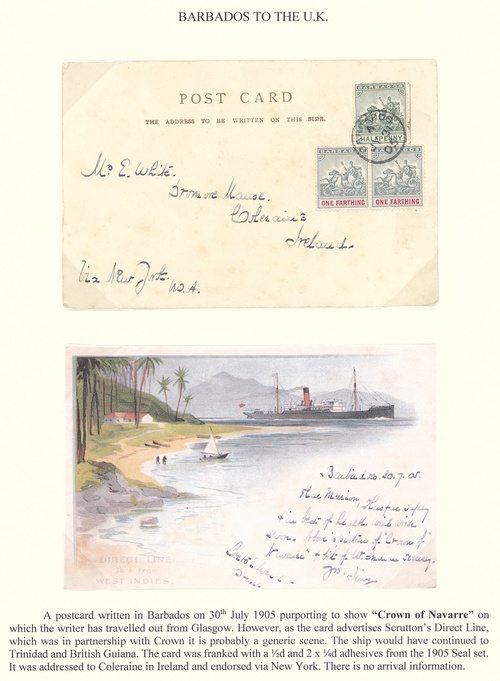 BARBADOS TO THE U.K.
POST CARD
THE ADDRESS TO BE WRITTEN ON THIS SIDE.
BARBADOS
HALFPENNY
ONE FARTHING ONE FARTHING
E. White.
Dromore Manse.
Coleraine
Ireland.
Via New York.
U.S.A.
Barbados, 30.7.05.
safely
& in best of health. will write
soon.
"Crown of
Navarre" & bit of W. Indian scenery.
DIRECT LINE
WEST INDIES
A postcard written in Barbados on 30th July 1905 purporting to show “Crown of Navarre” on
which the writer has travelled out from Glasgow. However, as the card advertises Scrutton’s Direct Line,
which was in partnership with Crown it is probably a generic scene. The ship would have continued to
Trinidad and British Guiana. The card was franked with a ½d and 2 x ¼d adhesives from the 1905 Seal set.
It was addressed to Coleraine in Ireland and endorsed via New York. There is no arrival information.